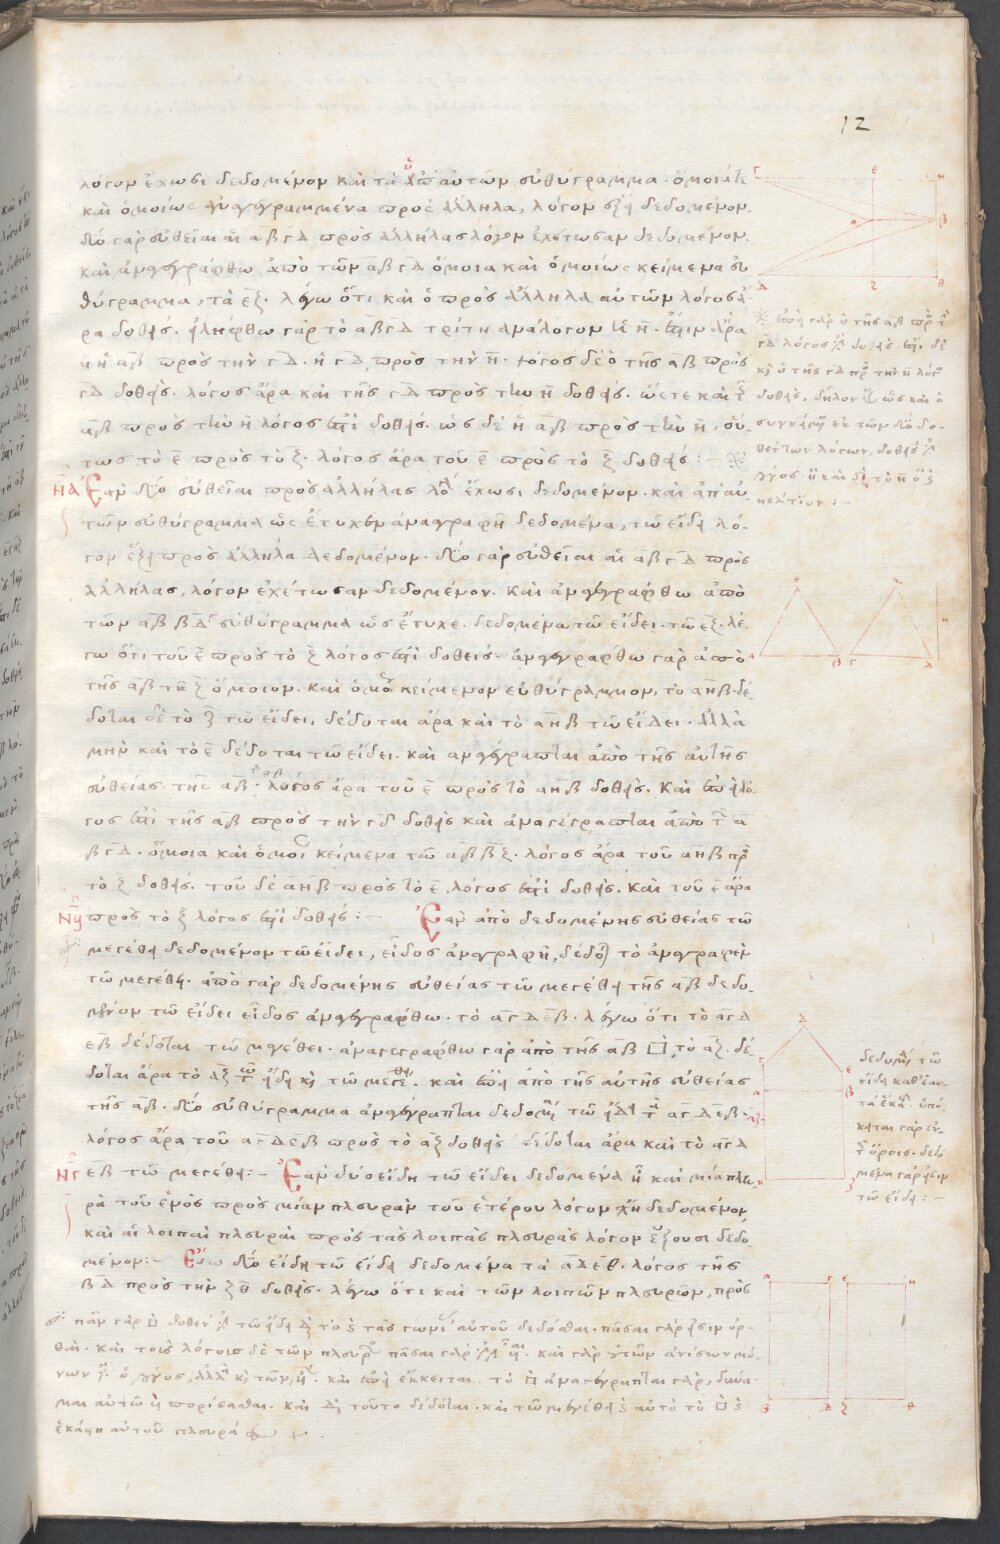 12
λόγον ἔχωσι δεδομένον καὶ τὰ ἀπ αὐτῶν εὐθύγραμμα ὅμοιά τε
καὶ ὁμοίως ἀναγεγραμμένα πρὸς ἄλληλα, λόγον ἕξει δεδομένον.
δύο γὰρ εὐθεῖαι αἱ αβ γδ πρὸς ἀλλήλας λόγον ἐχέτωσαν δεδομένον.
καὶ ἀναγεγράφθω ἀπὸ τῶν αβ γδ ὅμοια καὶ ὁμοίως κείμενα εὐ
θύγραμμα, τὰ εζ. λέγω ὅτι καὶ ὁ πρὸς ἄλληλα αὐτῶν λόγος
δοθείς. εἰλήφθω γὰρ τῶν αβ γδ τρίτη ἀνάλογον ἡ η. ἔστιν ἄρα
ὡς ἡ αβ πρὸς τὴν γδ. ἡ γδ πρὸς τὴν η. λόγος δὲ ὁ τῆς αβ πρὸς
γδ δοθείς. λόγος ἄρα καὶ τῆς γδ πρὸς τὴν η δοθείς. ὥστε καὶ τῆς
αβ πρὸς τὴν η λόγος ἐστὶ δοθείς. ὡς δὲ ἡ αβ πρὸς τὴν η, οὕ
τως τὸ ε πρὸς τὸ ζ. λόγος ἄρα τοῦ ε πρὸς τὸ ζ δοθείς :–
να Ἐὰν δύο εὐθεῖαι πρὸς ἀλλήλας λόγον ἔχωσι δεδομένον. καὶ ἀπ αὐ
τῶν εὐθύγραμμα ὡς ἔτυχεν ἀναγραφῇ δεδομένα, τῷ εἴδει λό
γον ἕξει πρὸς ἄλληλα δεδομένον. δύο γὰρ εὐθεῖαι αἱ αβ γδ πρὸς
ἀλλήλας, λόγον ἐχέτωσαν δεδομένον. καὶ ἀναγεγράφθω ἀπὸ
τῶν αβ γδ εὐθύγραμμα ὡς ἔτυχε. δεδομένα τῷ εἴδει. τὰ εζ. λέ
γω ὅτι τοῦ ε πρὸς τὸ ζ λόγος ἐστὶ δοθείς. ἀναγεγράφθω γὰρ ἀπὸ
τῆς αβ τῷ ζ ὅμοιον. καὶ ὁμοίως κείμενον εὐθύγραμμον, τὸ αηβ. δέ
δοται δὲ τὸ ζ τῷ εἴδει, δέδοται ἄρα καὶ τὸ αηβ τῷ εἴδει. ἀλλὰ
μὴν καὶ τὸ ε δέδοται τῷ εἴδει. καὶ ἀναγέγραπται ἀπὸ τῆς αὐτῆς
εὐθείας τῆς αβ. λόγος ἄρα τοῦ ε πρὸς τὸ αηβ δοθείς. καὶ ἐπεὶ λό
γος ἐστὶ τῆς αβ πρὸς τὴν γδ δοθεὶς καὶ ἀναγέγραπται ἀπὸ τῶν α
β γδ. ὅμοια καὶ ὁμοίως κείμενα τὰ αηβ ζ. λόγος ἄρα τοῦ αηβ πρὸς
τὸ ζ δοθείς. τοῦ δὲ αηβ πρὸς τὸ ε. λόγος ἐστὶ δοθείς. καὶ τοῦ ε ἄρα
πρὸς τὸ ζ λόγος ἐστὶ δοθείς :– Ἐὰν ἀπὸ δεδομένης εὐθείας τῷ
μεγέθει δεδομένον τῷ εἴδει, εἶδος ἀναγραφῇ, δέδοται τὸ ἀναγραφὲν
τῷ μεγέθει. ἀπὸ γὰρ δεδομένης εὐθείας τῷ μεγέθει τῆς αβ δεδο
μένον τῷ εἴδει εἶδος ἀναγεγράφθω. τὸ αγδεβ. λέγω ὅτι τὸ αγδ
εβ δέδοται τῷ μεγέθει. ἀναγεγράφθω γὰρ ἀπὸ τῆς αβ □, τὸ αζ. δέ
δοται ἄρα τὸ αζ τῷ εἴδει κὶ τῷ μεγέθει. καὶ ἐπεὶ ἀπὸ τῆς αὐτῆς εὐθείας
τῆς αβ. δύο εὐθύγραμμα ἀναγέγραπται δεδομένα τῷ εἴδει τὰ αγδεβ. αζ.
λόγος ἄρα τοῦ αγδεβ πρὸς τὸ αζ δοθείς δέδοται ἄρα καὶ τὸ αγδ
εβ τῷ μεγέθει :– Ἐὰν δύο εἴδη τῷ εἴδει δεδομένα ᾖ καὶ μία πλευ
ρὰ τοῦ ἑνὸς πρὸς μίαν πλευρὰν τοῦ ἑτέρου λόγον ἔχῃ δεδομένον,
καὶ αἱ λοιπαὶ πλευραὶ πρὸς τὰς λοιπὰς πλευρὰς λόγον ἕξουσι δεδο
μένον :– Ἔστω δύο εἴδη τῷ εἴδει δεδομένα τὰ αδ εθ. λόγος τῆς
βδ πρὸς τὴν ζθ δοθείς. λέγω ὅτι καὶ τῶν λοιπῶν πλευρῶν, πρὸς
πᾶν γὰρ □ δοθέν τῷ εἴδει τὸ τὰς γωνίας αὐτοῦ δεδόσθαι. πᾶσαι γάρ εἰσιν ὀρ
θαί. καὶ τοὺς λόγους δὲ τῶν πλευρῶν πᾶσαι γὰρ ἴσαι. καὶ γὰρ
ἔκκειται. τὸ □ ἀναγέγραπται γὰρ, δυνα
καὶ διὰ τοῦτο δέδοται. καὶ τῷ μεγέθει αὐτὸ τὸ □
ἑκάστη αὐτοῦ πλευρά
ἐπεὶ γὰρ ὁ τῆς αβ πρὸς τὴν
γδ λόγος δοθείς.
κὶ ὁ τῆς γδ πρὸς τὴν η λόγος
δοθείς. δῆλον ὡς καὶ ὁ
συγκείμενος ἐκ τῶν δύο δο
θέντων λόγων, δοθείς
δεδομένα τῷ
εἴδει καθ ἑαυ
τά ὑπό
κειται γὰρ ἐν
τοῖς ὅροις. δεδο
μένα γάρ εἰσιν
τῷ εἴδει :–